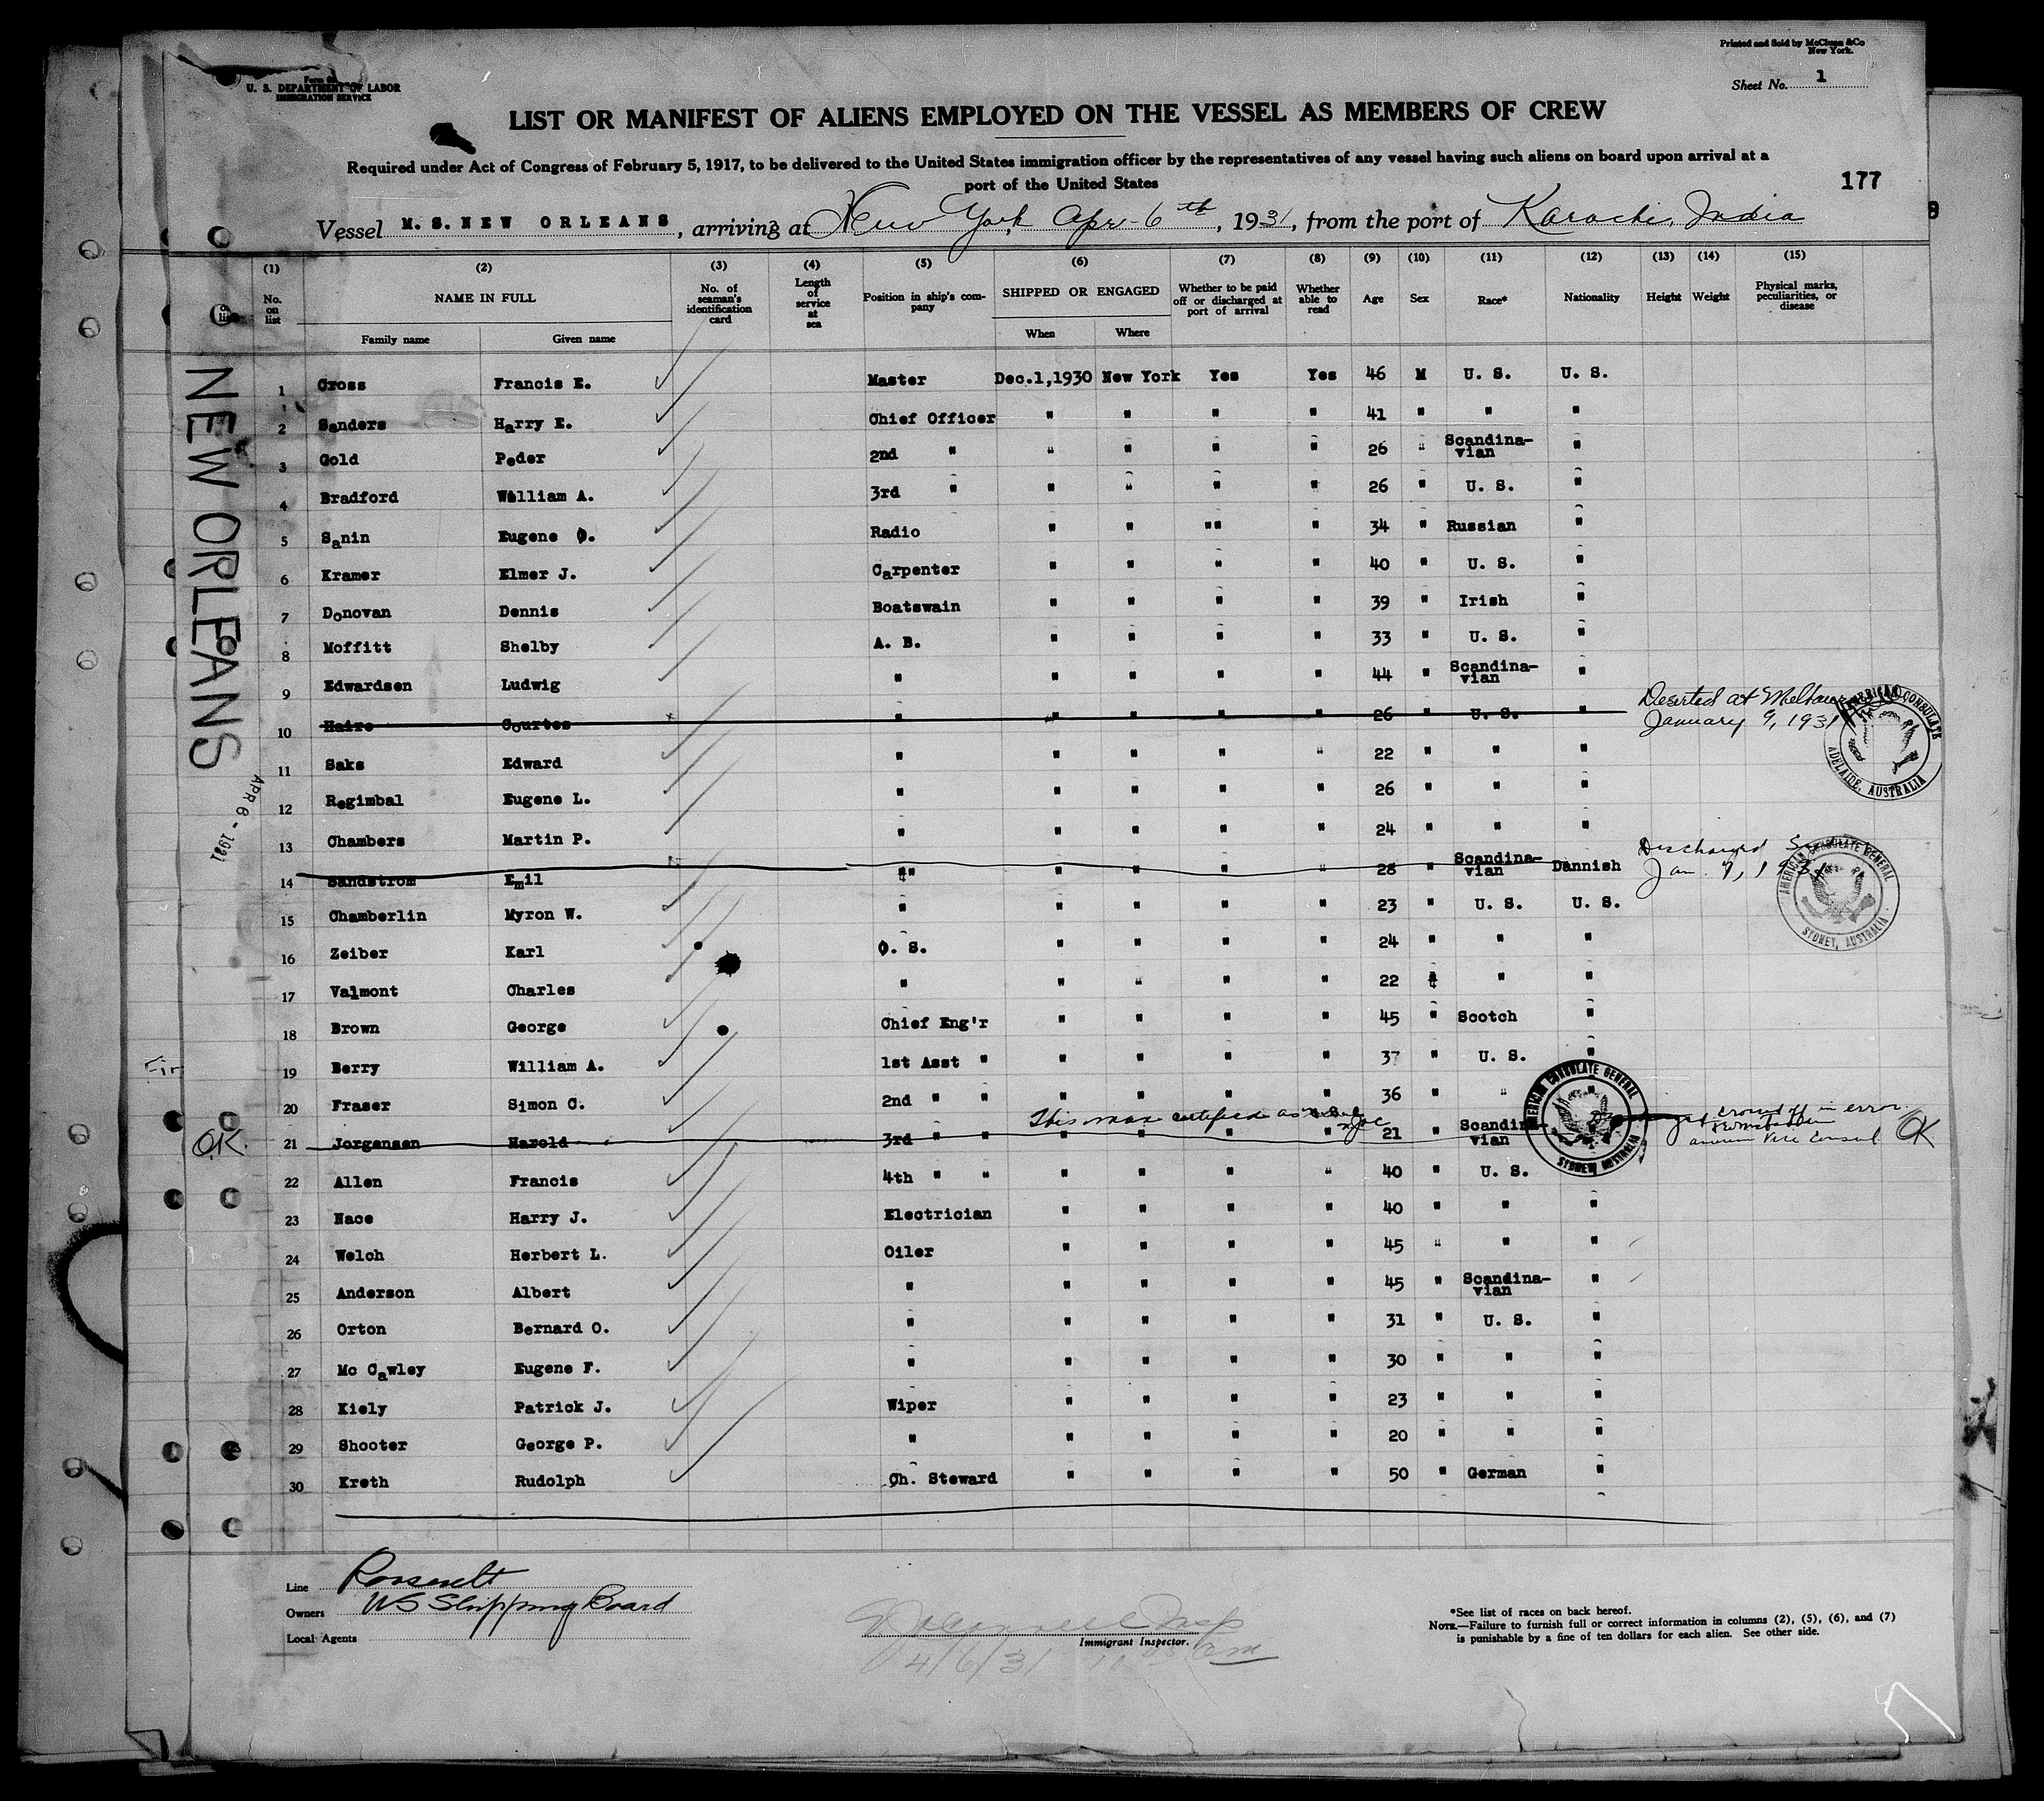 Printed and Sold by McClunn &Co
New York.
Form 6
U. S. DEPARTMENT OF LABOR
IMMIGRATION SERVICE
Sheet No. 1
LIST OR MANIFEST OF ALIENS EMPLOYED ON THE VESSEL AS MEMBERS OF CREW
Required under Act of Congress of February 5, 1917, to be delivered to the United States immigration officer by the representatives of any vessel having such aliens on board upon arrival at a
port of the United States
177
Vessel M. S. NEW ORLEANS, arriving at New York, Apr - 6th, 1931, from the port of Karachi, India
(1) (2) (3) (4) (5) (6) (7) (8) (9) (10) (11) (12) (13) (14) (15)
No. on list NAME IN FULL Family name Given name No. of seaman's identification card Length of service at sea Position in ship's company SHIPPED OR ENGAGED When Where Whether to be paid off or discharged at port of arrival Whether able to read Age Sex Race* Nationality Height Weight Physical marks, peculiarities, or disease
1 Cross Francis E. Master Dec.1,1930 New York Yes Yes 46 M U. S. U. S.
2 Sanders Harry E. Chief Officer " " " " 41 " " "
3 Gold Peder 2nd " " " " " 26 " Scandina-vian "
4 Bradford William A. 3rd " " " " " 26 " U. S. "
5 Sanin Eugene O. Radio " " "" " 34 " Russian "
6 Kramer Elmer J. Carpenter " " " " 40 " U. S. "
7 Donovan Dennis Boatswain " " " " 39 " Irish "
8 Moffitt Shelby A. B. " " " " 33 " U. S. "
9 Edwardsen Ludwig " " " " " 44 " Scandina-vian "
10 Haire Courtes " " " " " 26 " U. S. " Deserted at
January 9, 1931
AMERICAN CONSULATE
ADELAIDE, AUSTRALIA
11 Saks Edward " " " " " 22 " " "
12 Regimbal Eugene L. " " " " " 26 " " "
13 Chambers Martin P. " " " " " 24 " " "
14 Sandstrom Emil "" " " " " 28 " Scandina-vian Dannish Discharged
Jan. 7, 193
AMERICAN CONSULATE GENERAL
SYDNEY, AUSTRALIA
15 Chamberlin Myron W. " " " " " 23 " U. S. U. S.
16 Zeiber Karl O. S. " " " " 24 " " "
17 Valmont Charles " " " " " 22 " " "
18 Brown George Chief Eng'r " " " " 45 " Scotch "
19 Berry William A. 1st Asst " " " " " 37 " U. S. "
20 Fraser Simon C. 2nd " " " " " " 36 " " "
This man certified as
21 Jorgensen Harold 3rd " " " " " " 21 " Scandina-vian
crossed off in error
American Vice Consul
OK
OK.
AMERICAN CONSULATE GENERAL
SYDNEY AUSTRALIA
22 Allen Francis 4th " " " " " " 40 " U. S.
23 Nace Harry J. Electrician " " " " 40 " " "
24 Welch Herbert L. Oiler " " " " 45 " " "
25 Anderson Albert " " " " " 45 " Scandina-vian "
26 Orton Bernard O. " " " " " 31 " U. S. "
27 Mc Cawley Eugene F. " " " " " 30 " " "
28 Kiely Patrick J. Wiper " " " " 23 " " "
29 Shooter George P. " " " " " 20 " " "
30 Kreth Rudolph Ch. Steward " " " " 50 " German "
NEW ORLEANS
APR 6 - 1931
Line Roosevelt
Owners US Shipping Board
Local Agents
Immigrant Inspector.
4/6/31
*See list of races on back hereof.
NOTE.—Failure to furnish full or correct information in columns (2), (5), (6), and (7)
is punishable by a fine of ten dollars for each alien. See other side.